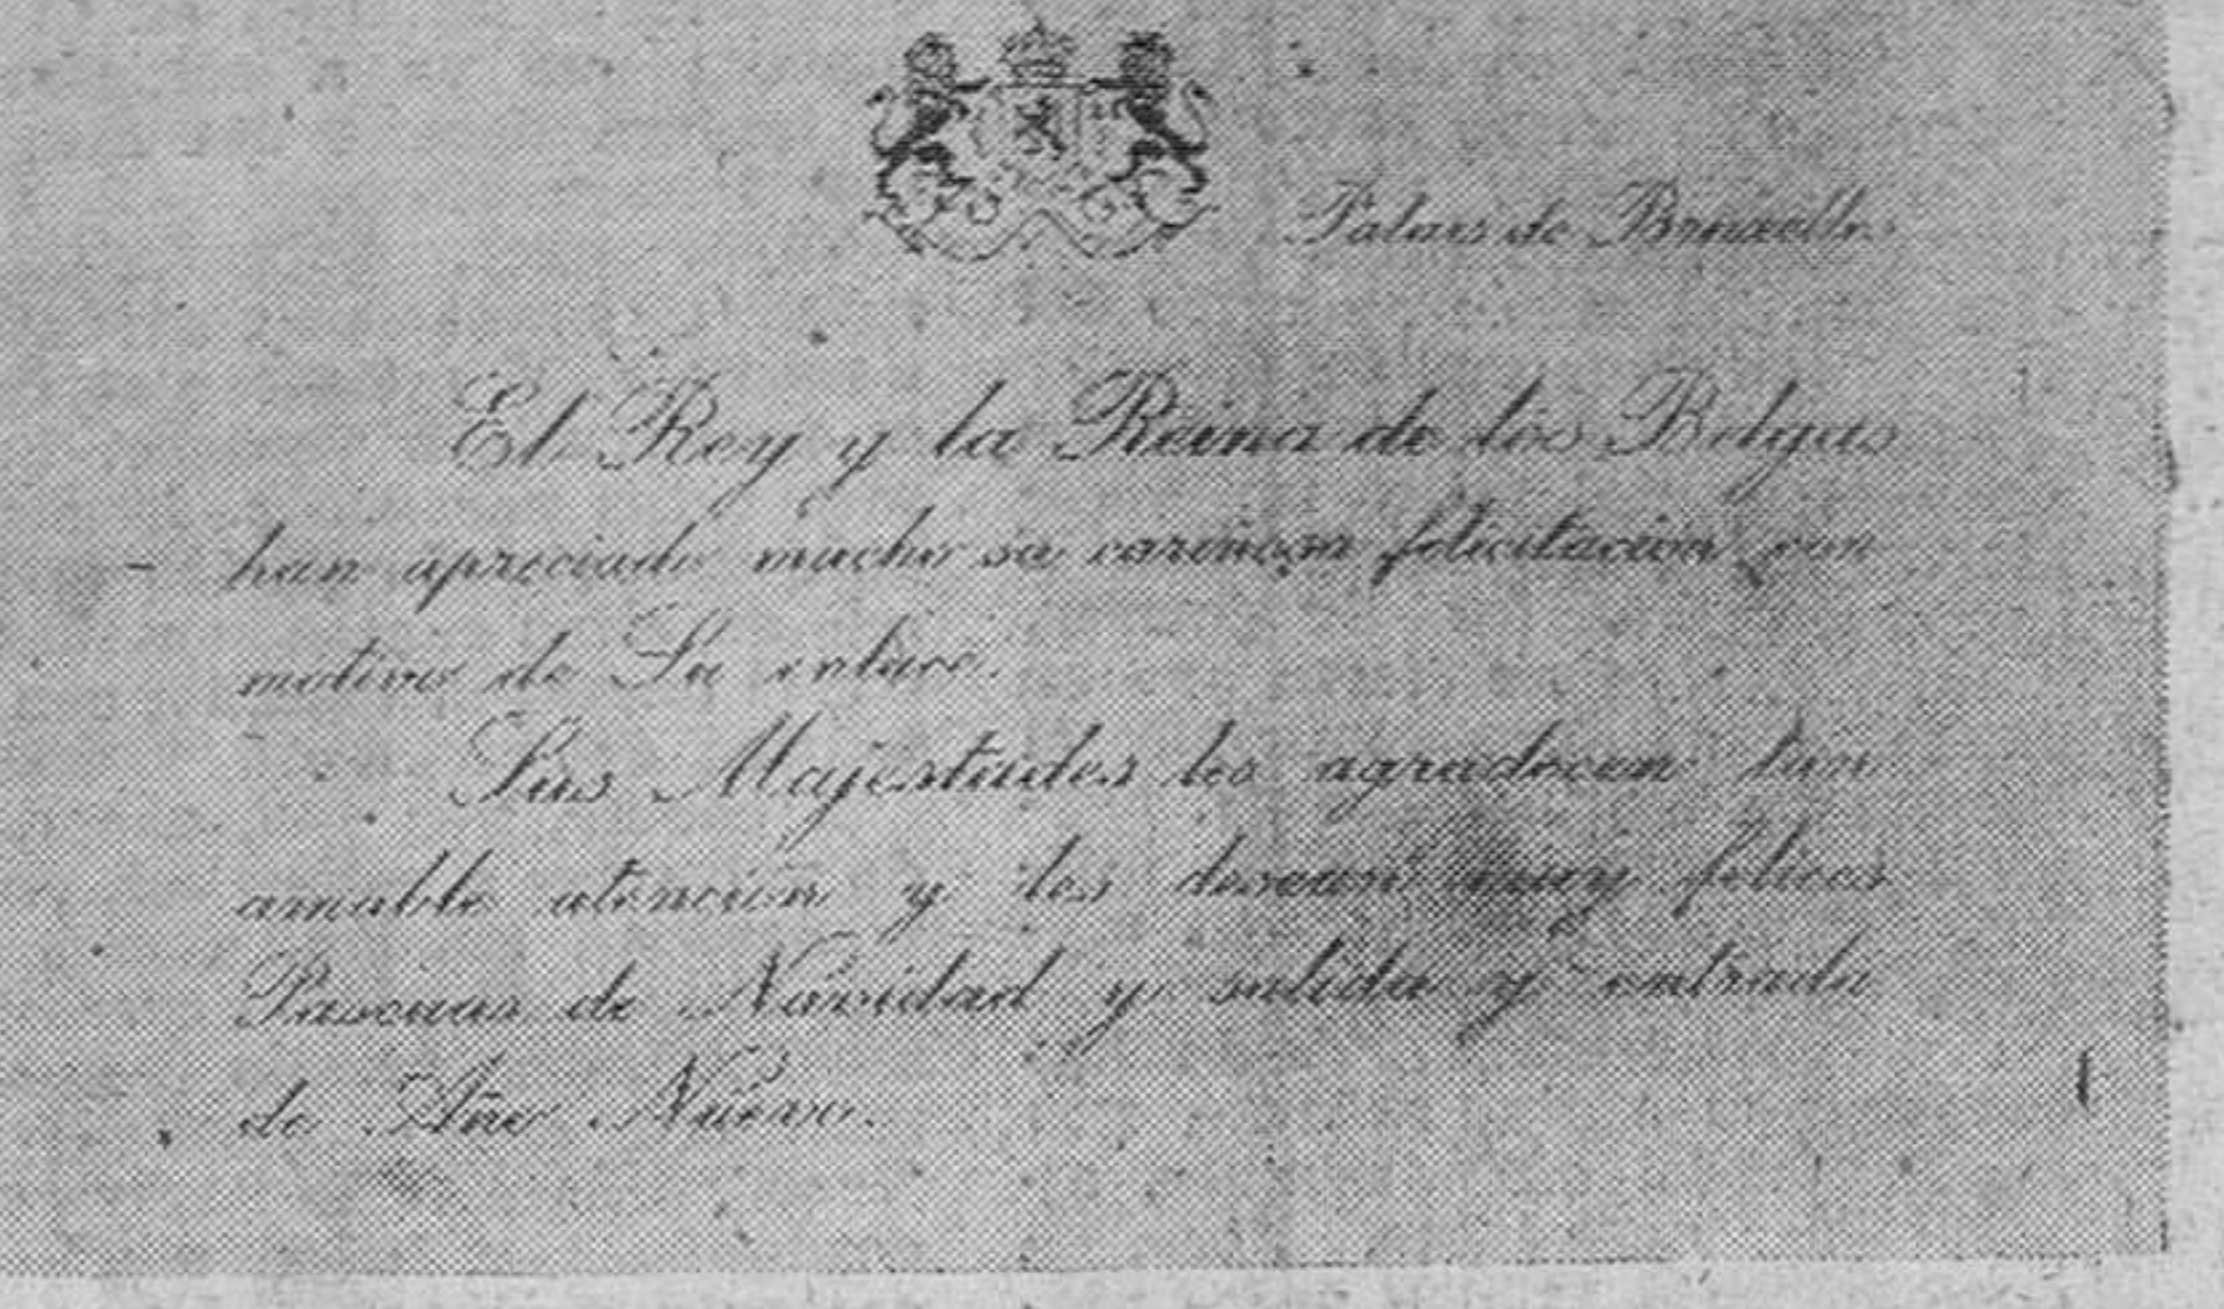 Palais de Bruxelles
El Rey y la Reina de los Belgas
han apreciado mucho su cariñosa felicitación con
motivo de Su enlace.
Sus Majestades les agradecen tan
amable atención y les desean muy felices
Pascuas de Navidad y salida y entrada
de Año Nuevo.